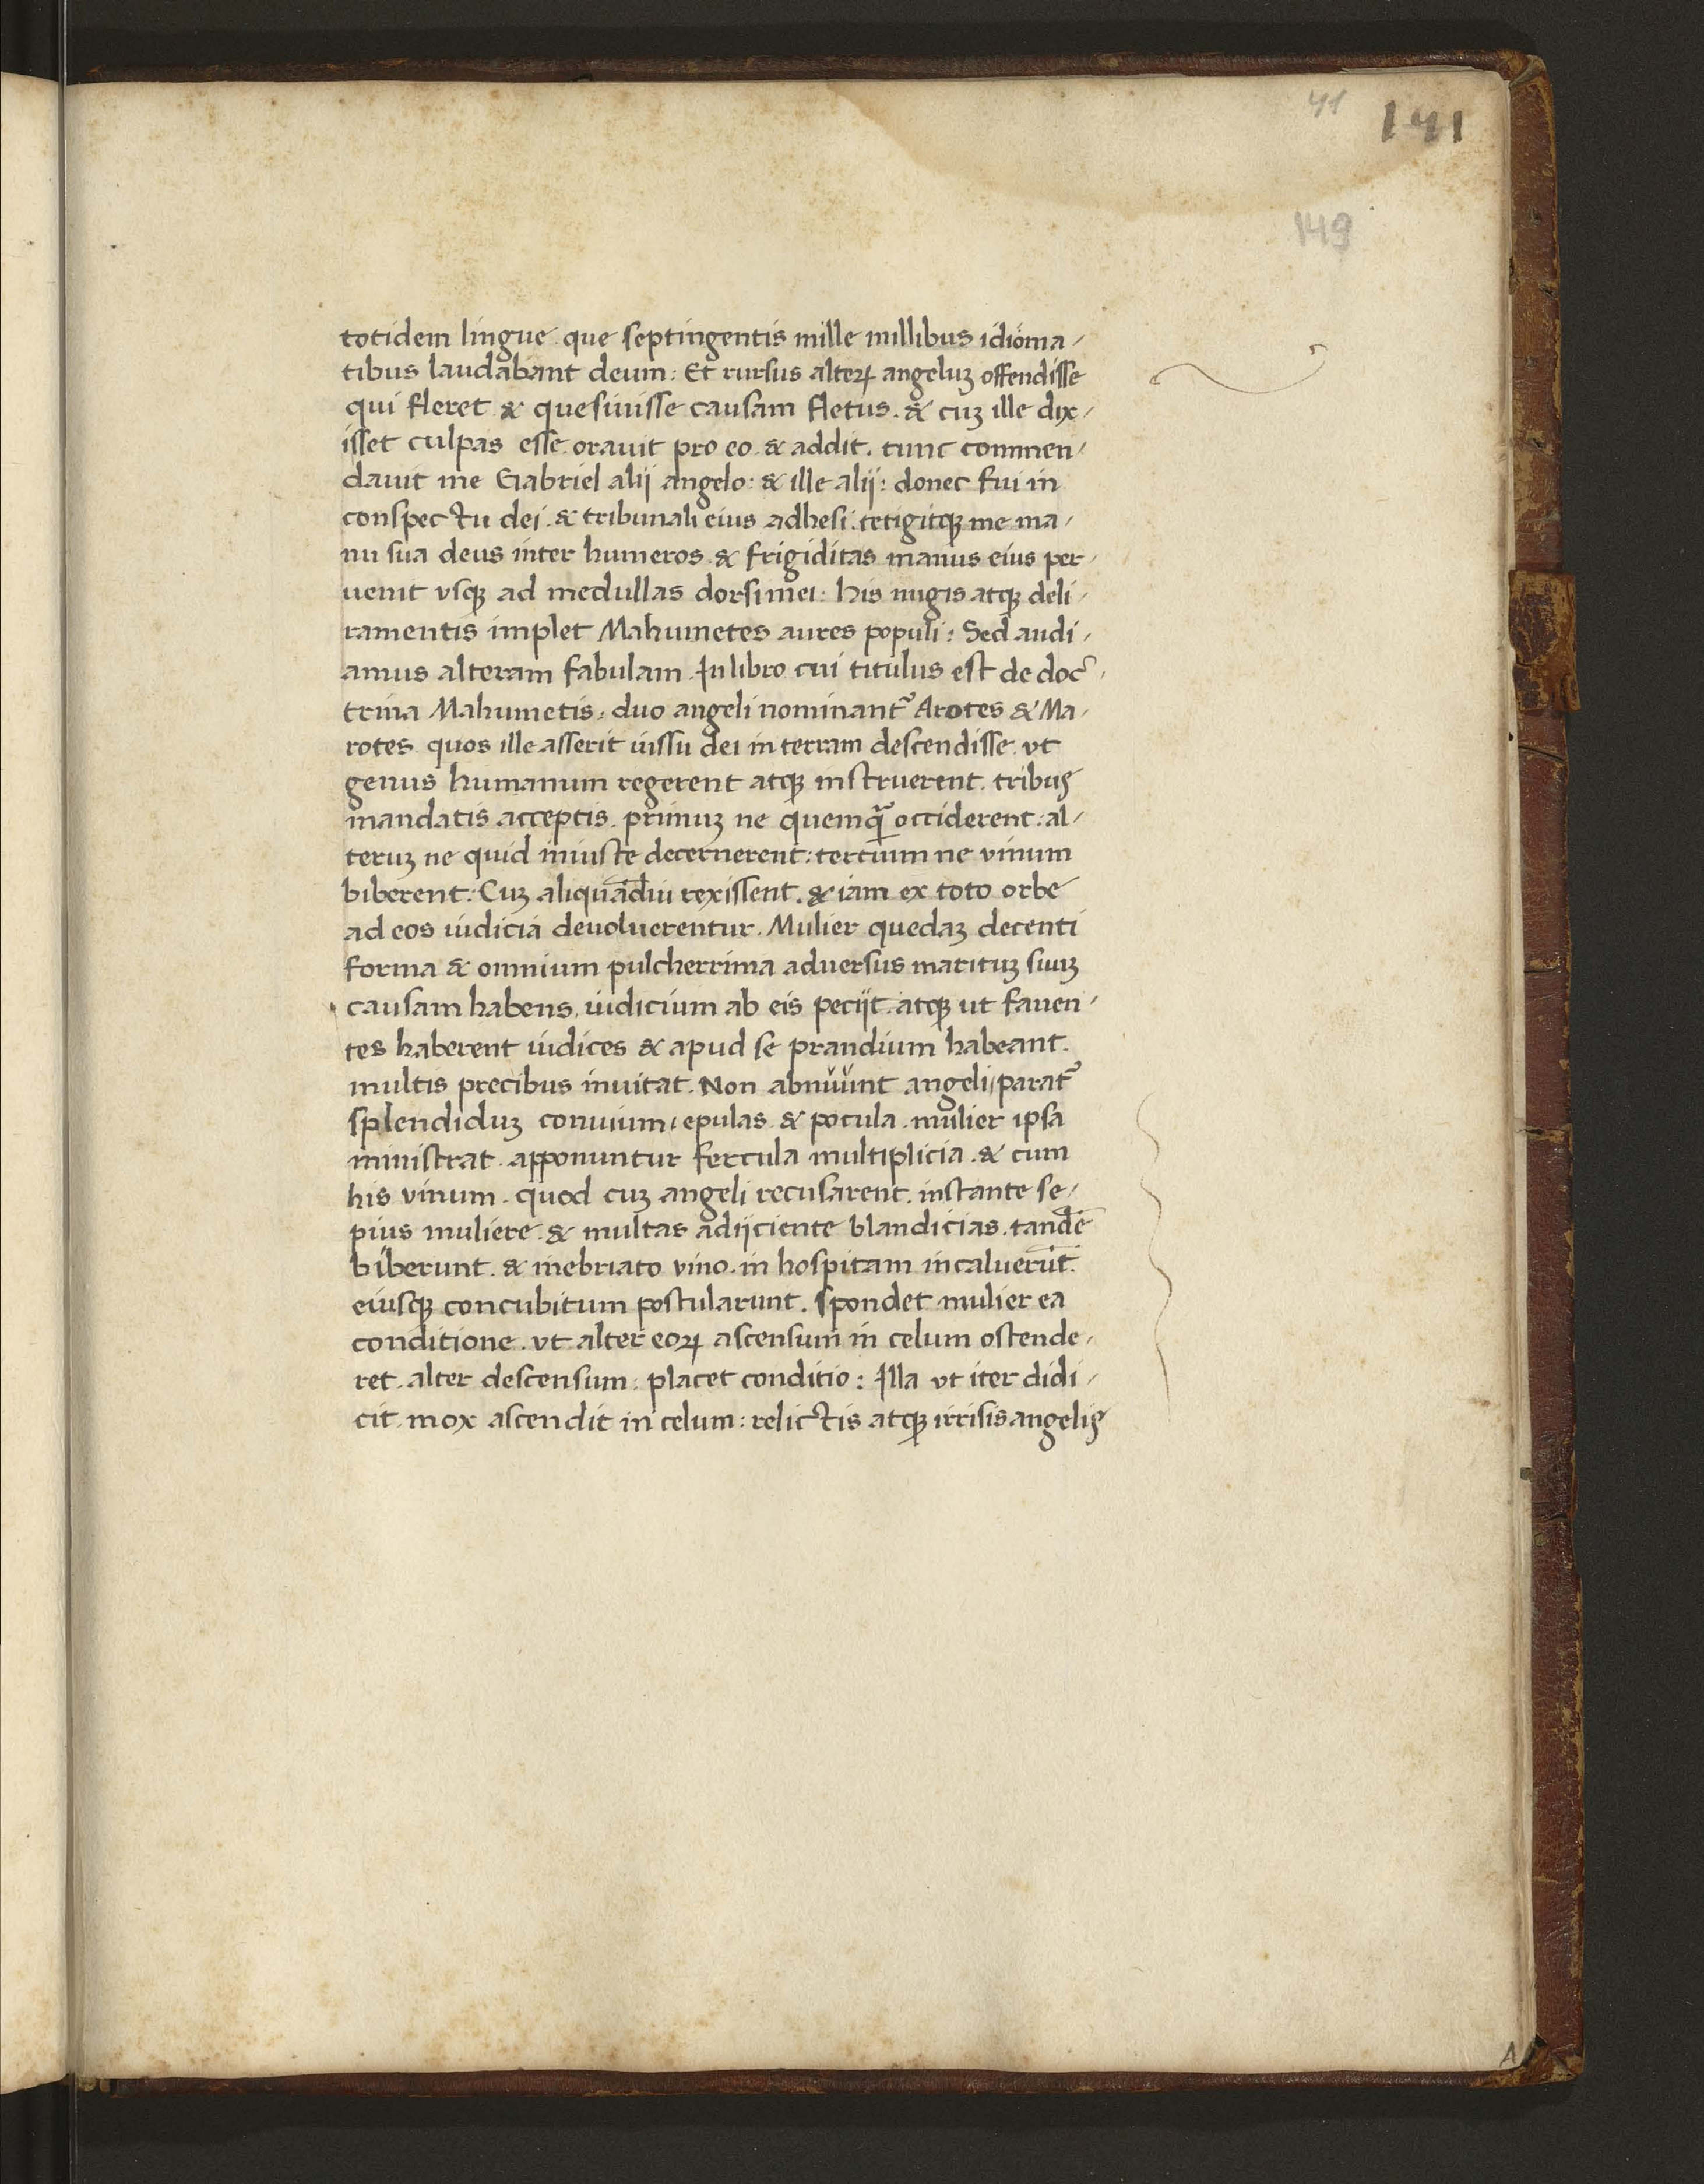 41
141
149
totidem lingue. que septingentis mille millibus idioma-
tibus laudabant deum: Et rursus alteꝝ angeluꝫ offendisse
qui fleret & quesiuisse causam fletus. & cuꝫ ille dix-
isset culpas esse. orauit pro eo. & addit. tunc commen-
dauit me Gabriel alij angelo: & ille alij: donec fui in
conspectu dei. & tribunali eius adhesi. tetigitqꝫ me ma-
nu sua deus inter humeros. & frigiditas manus eius per-
uenit vsqꝫ ad medullas dorsi mei: his nugis atqꝫ deli-
ramentis implet Mahumetes aures populi: Sed audi-
amus alteram fabulam. In libro cui titulus est de doc-
trina Mahumetis: duo angeli nominant᷑ Arotes & Ma-
rotes. quos ille asserit iussu dei in terram descendisse. vt
genus humanum regerent atqꝫ instruerent. tribus
mandatis acceptis. primuꝫ ne quemq̄ᷓ occiderent: al-
teruꝫ ne quid iniuste decernerent: tertium ne vinum
biberent: Cuꝫ aliquādiu rexissent. & iam ex toto orbe
ad eos iudicia deuoluerentur. Mulier quedaꝫ decenti
forma & omnium pulcherrima aduersus marituꝫ suuꝫ
causam habens, iudicium ab eis peciit. atqꝫ ut fauen-
tes haberent iudices & apud se prandium habeant.
multis precibus inuitat. Non abnuunt angeli, parat᷑
splendiduꝫ conuiuium, epulas & pocula. mulier ipsa
ministrat. apponuntur fercula multiplicia. & cum
his vinum. quod cuꝫ angeli recusarent. instante se-
pius muliere. & multas adijciente blandicias. tandē
biberunt. & inebriato vino. in hospitam incaluerūt.
eiusqꝫ concubitum postularunt. spondet mulier ea
conditione. vt alter eoꝝ ascensum in celum ostende-
ret. alter descensum: placet conditio: Illa vt iter didi-
cit. mox ascendit in celum: relictis atqꝫ irrisis angelis